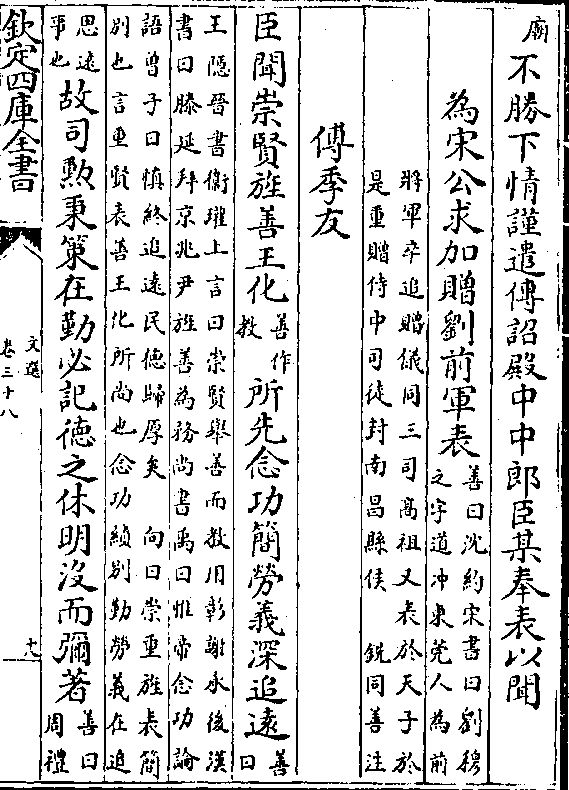 廟不勝下情謹遣傳詔殿中中郎臣某奉表以聞
為宋公求加贈劉前軍表善曰沈約宋書曰劉穆之字道冲東莞人為前
將軍卒追贈儀同三司髙祖又表於天子於是重贈侍中司徒封南昌縣侯 銑同善注
傅季友
臣聞崇賢旌善王化善作教所先念功簡勞義深追遠善曰
王隱晉書衛瓘上言曰崇賢舉善而教用彰謝承後漢書曰滕延拜京兆尹旌善為務尚書禹曰惟帝念功論
語曾子曰慎終追遠民徳歸厚矣 向曰崇重旌表簡别也言重賢表善王化所尚也念功績别勤勞義在追
思逺事也故司勲秉策在勤必記徳之休明沒而彌著善曰周禮
欽定四庫全書
文選
卷三十八